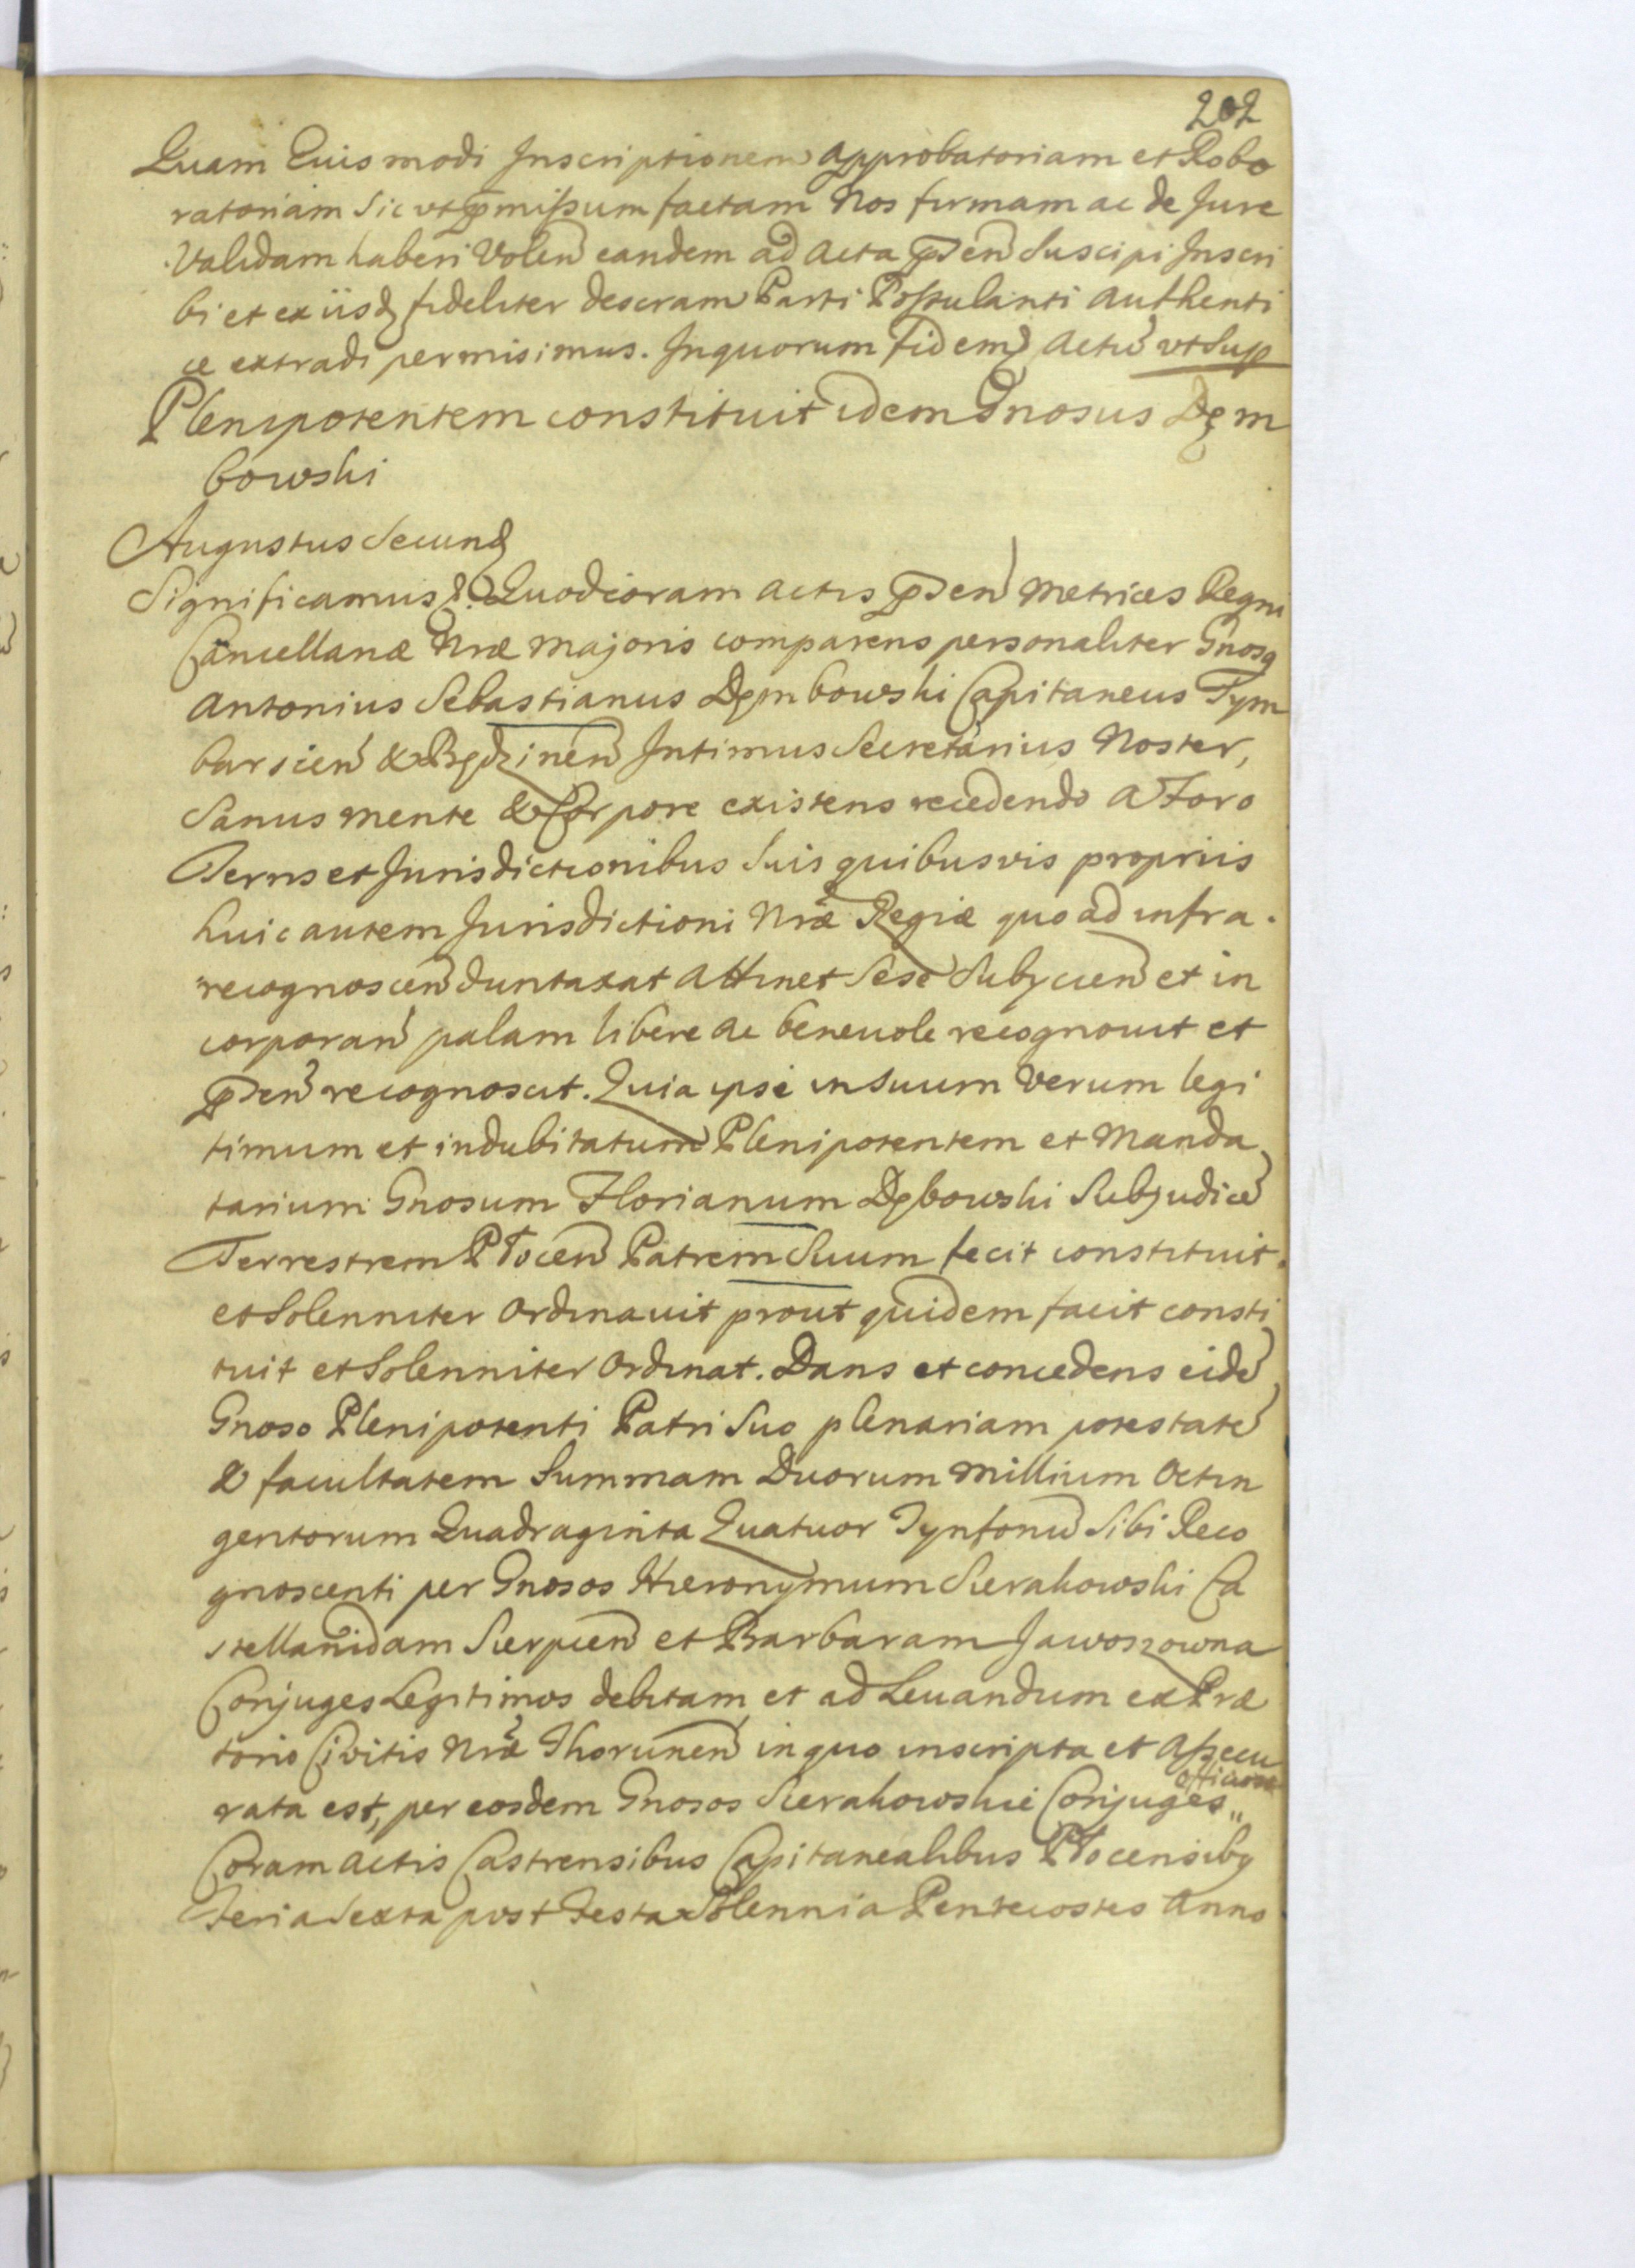 202
Quam Euismodi Inscriptionem approbatoriam et Robo
ratoriam sic ut pmissum factam Nos firmam ac de Jure
Validam haberi Volen eandem ad acta pden suscipi Inscri
bi et ex iisd fideliter descram Parti Postulanti authenti
ce extradi permisimus. In quorum fidem Actu ut Sup
Plenipotentem constituit idem Gnosus Dęm
bowski
Augustus Secund
Significamus &. Quod coram actis pden Metrices Regni
Cancellariæ Nræ Majoris comparens personaliter Gnosq
Antonius Sebastianus Dęmbowski Capitaneus Tym
barsien & Będzinen Intimus Secretarius Noster,
Sanus mente & Corpore existens recedendo a Foro
Terris et Jurisdictionibus suis quibusvis propriis
huic autem Jurisdictioni Nræ Regiæ quo ad infra
recognoscen duntaxat attinet sese subycien et in
corporan palam libere ac beneuole recognouit et
pden recognoscit. Quia ipse in suum verum legi
timum et indubitatum Plenipotentem et Manda
tarium Gnosum Florianum Dębowski Subjudice
Terrestrem Plocen Patrem Suum fecit constituit
et solenniter ordinauit prout quidem facit consti
tuit et solenniter ordinat. Dans et concedens eide
Gnoso Plenipotenti Patri suo plenariam potestate
& facultatem Summam Duorum Millium Octin
gentorum Quadraginta Quatuor Tynfonu sibi Reco
gnoscenti per Gnosos Hieronymum Sierakowski Ca
stellanidam Sierpcen et Barbaram Jaworzowna
Conjuges Legitimos debitam et ad Leuandum ex Præ
torio Civitis Nræ Thorunen in quo inscripta et assecu
rata est, per eosdem Gnosos Sierakowskie Conjuges"
Coram actis Castrensibus Capitanealibus Plocensibq
Feria sexta post Festa Solennia Pentecostes Anno